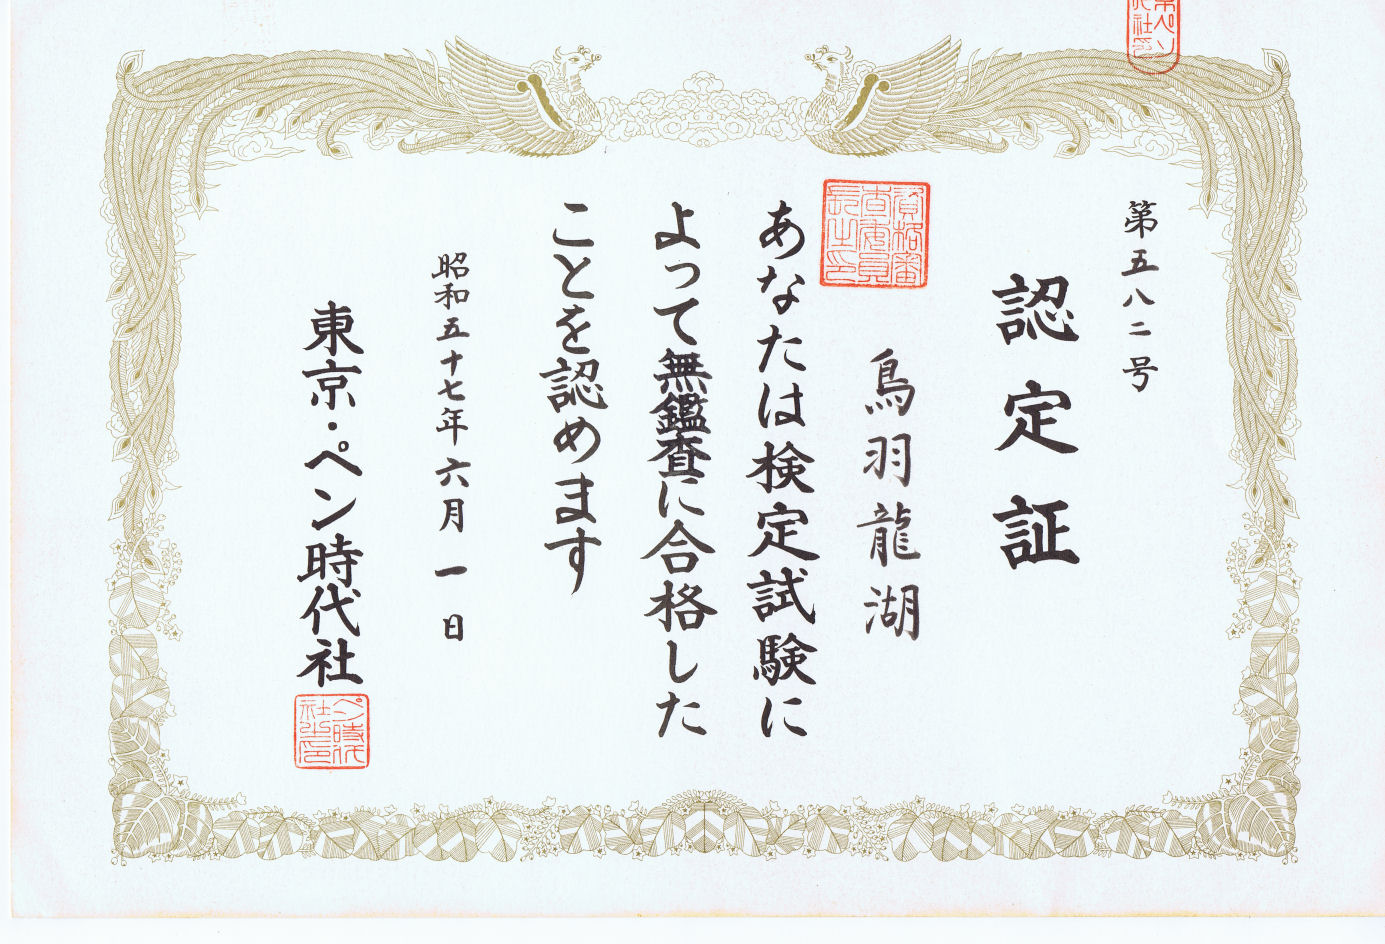 第五八二号
認定証
鳥羽龍湖
あなたは検定試験に
よって無鑑査に合格した
ことを認めます
昭和五十七年六月一日
東京・ペン時代社